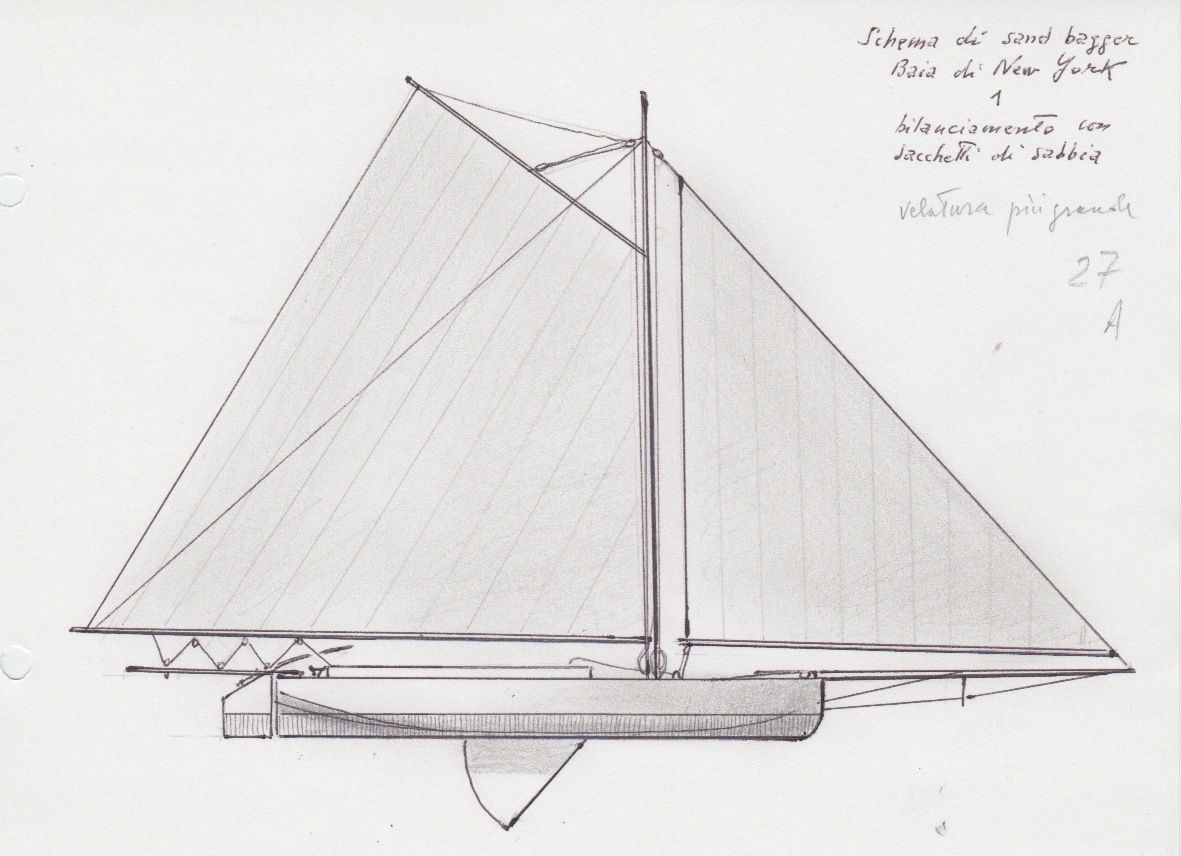 Schema di sand bagger
Baia di New York
1
bilanciamento con
sacchetti di sabbia
velatura più grande
27
A